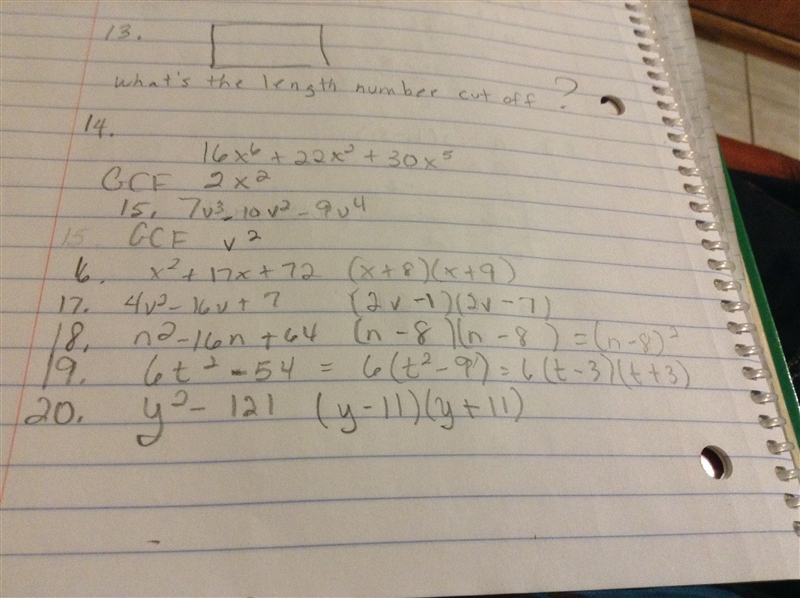 13.
What's the length number cut off ?
14.
16x⁶ + 22x² + 30x⁵
GCF 2x²
15. 7v³ - 10v² - 9v⁴
15 GCF v²
6. x² + 17x + 72 (x+8)(x+9)
17. 4v² - 16v + 7 (2v-1)(2v-7)
18. n² - 16n + 64 (n-8)(n-8) = (n-8)²
19. 6t² - 54 = 6(t²-9) = 6(t-3)(t+3)
20. y² - 121 (y-11)(y+11)